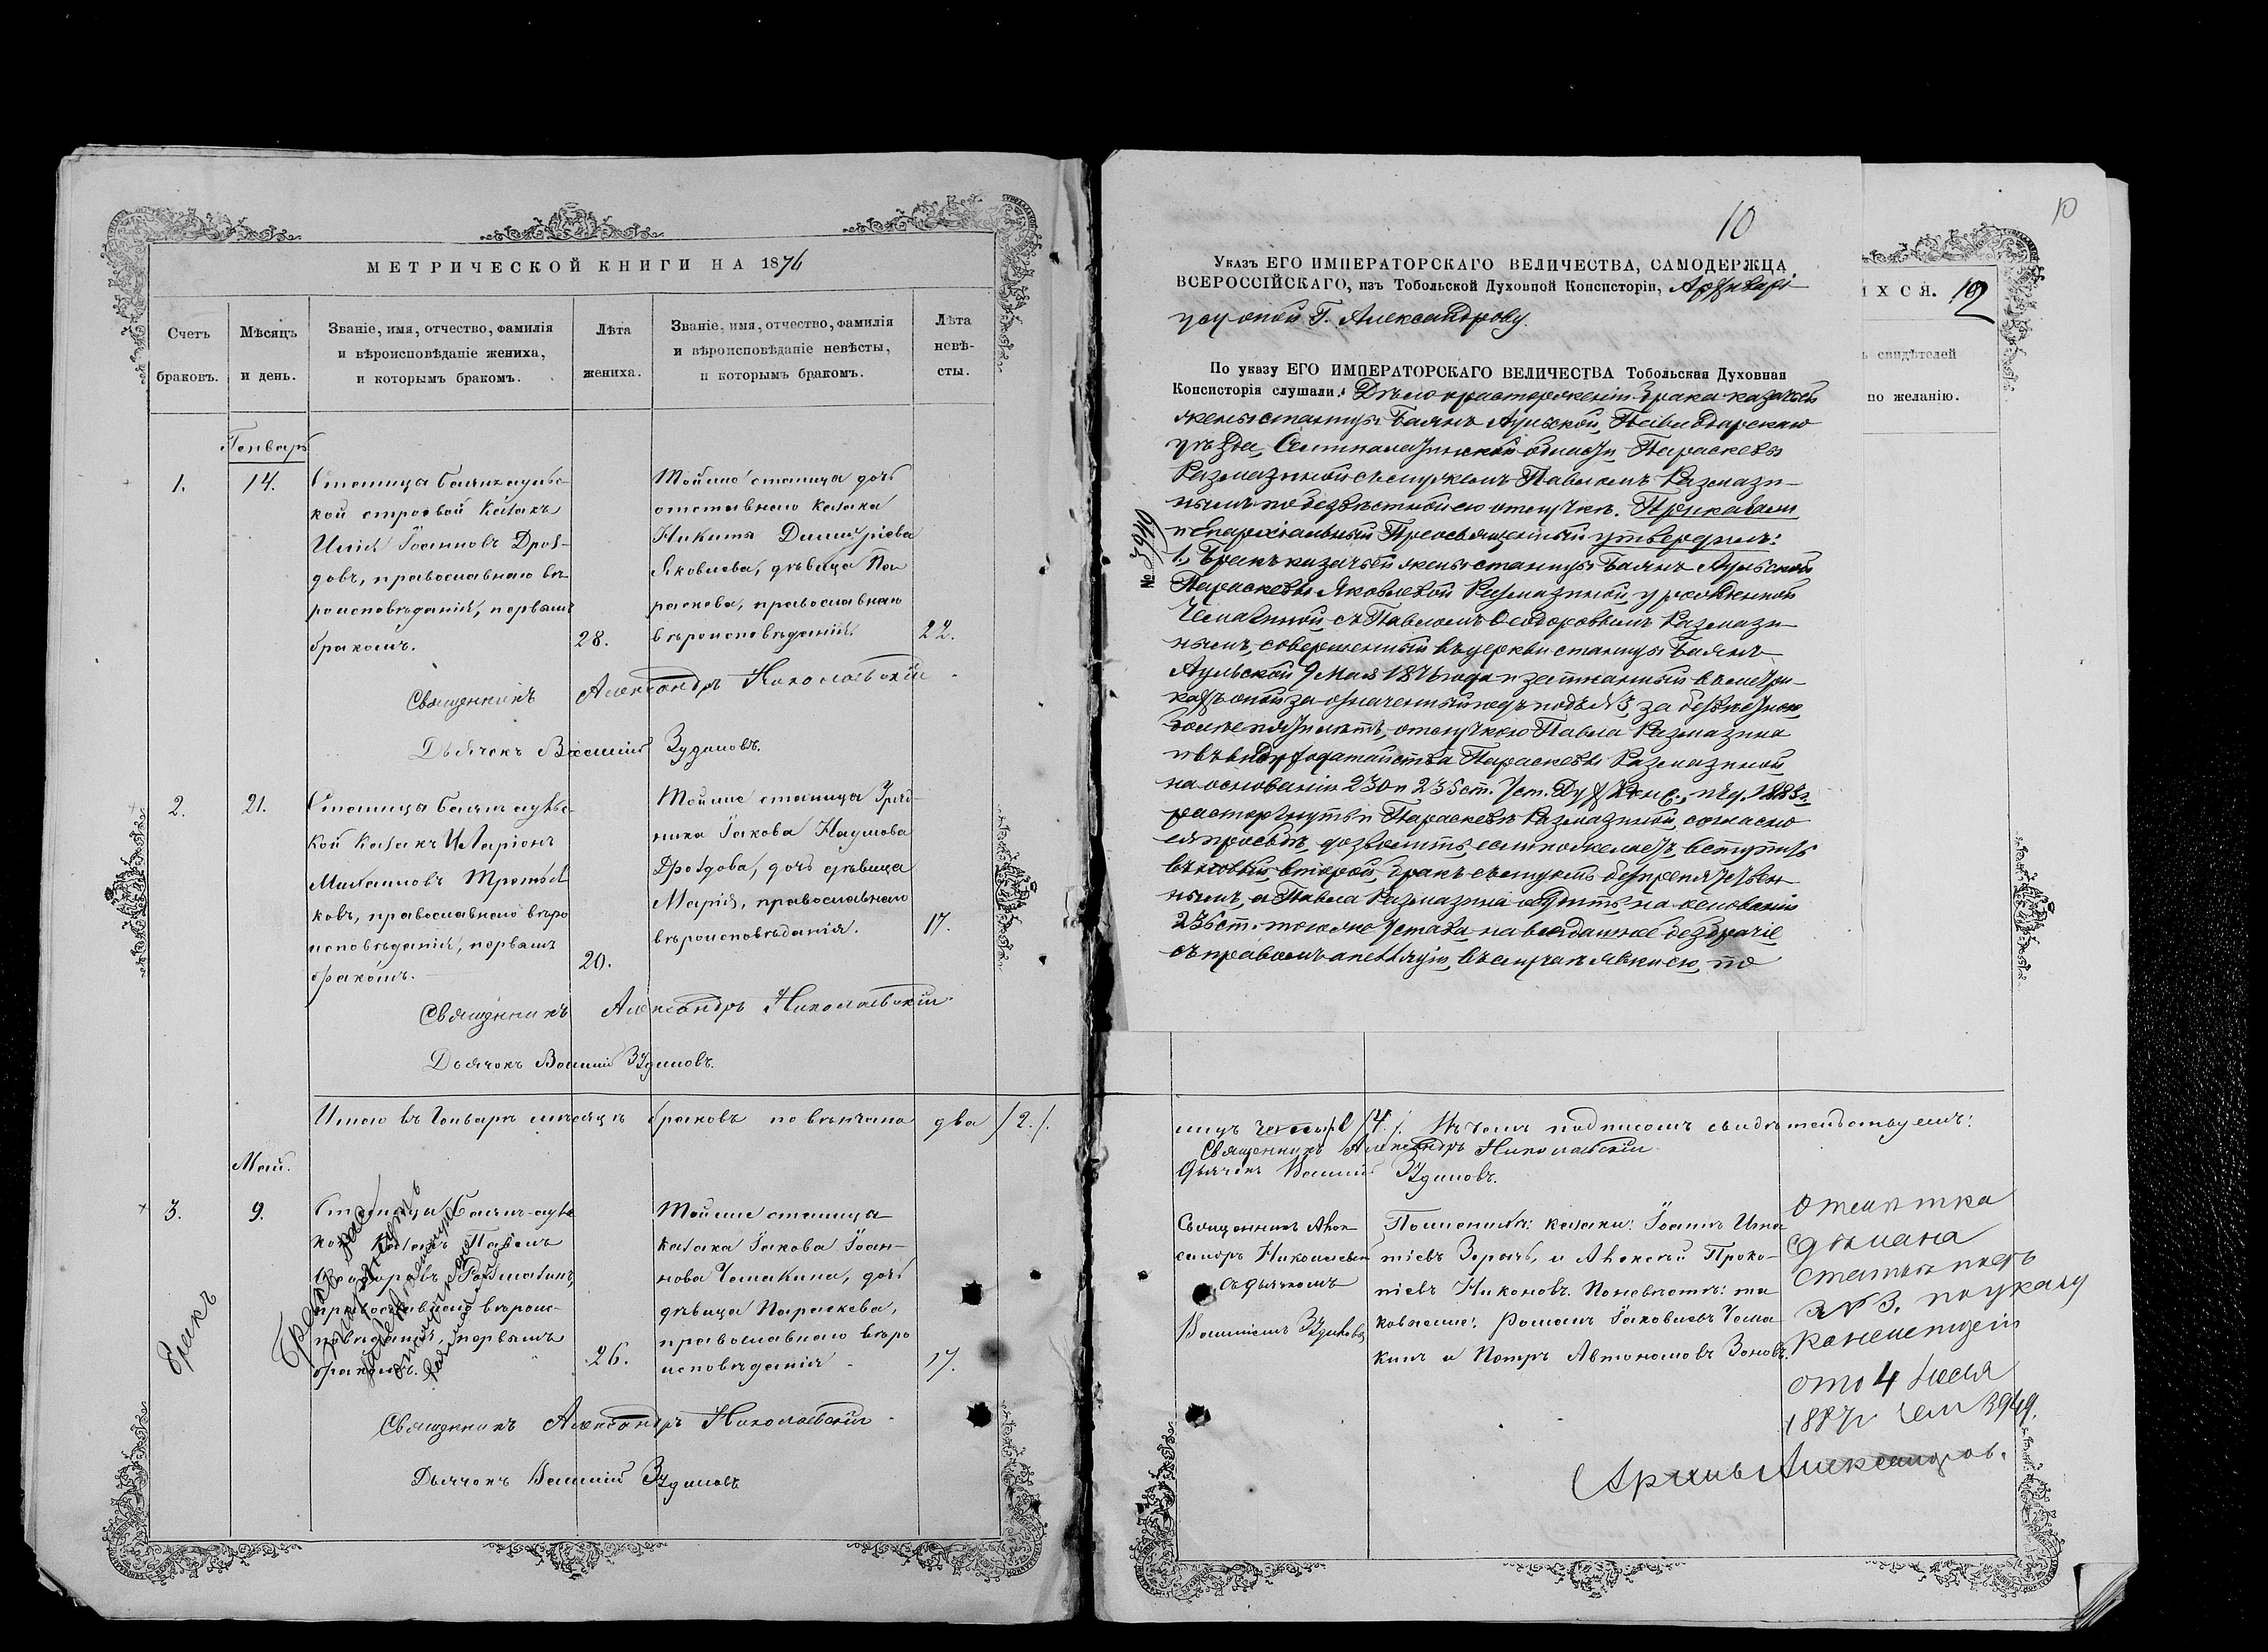 МЕТРИЧЕСКОЙ КНИГИ НА 1876
Счетъ
браковъ.
Мѣсяцъ
и день.
Званіе, имя, отчество, фамилія
и вѣроисповѣданіе жениха,
и которымъ бракомъ.
Лѣта
жениха.
Званіе, имя, отчество, фамилія
и вѣроисповѣданіе невѣсты,
и которымъ бракомъ.
Лѣта
невѣ-
сты.
Генварь
1.
14.
Станицы Баянъаульс-
кой строевой казакъ
Іоанновъ Дроз-
довъ, православнаго вѣ-
роисповѣданія, первымъ
бракомъ.
28.
Тойже станицы дочь
отставнаго казака
Никиты Димитріева
Яковлева, дѣвица Па-
раскева, православнаго
вѣроисповѣданія.
22.
Священникъ Александръ Николаевскій
Дьячекъ Василій Зудиловъ.
2.
21.
Станицы Баянъаульс-
кой казакъ Иларіонъ
Михаиловъ Третья-
ковъ, православнаго вѣро
исповѣданія, первымъ
бракомъ.
20.
Тойже станицы Уряд-
ника Іакова Наумова
Дроздова, дочь дѣвица
Марія, православнаго
вѣроисповѣданія.
17.
Священникъ Александръ Николаевскій
Дьячекъ Василій Зудиловъ.
Итого въ Генварѣ мѣсяцѣ браковъ повѣнчано два /2./.
Май.
3.
9.
Станицы Баянъ-ауль
кой казакъ Павелъ
Ѳеодоровъ Размазинъ,
православнаго вѣроис-
повѣданія, первымъ
бракомъ.
26.
Тойже станицы
казака Іакова Іоан-
нова Чемакина, дочь
дѣвица Параскева,
православнаго вѣро
исповѣданія
17.
Бракъ
Бракъ
расторгнутъ
Священникъ Александръ Николаевскій
Дьячекъ Василій Зудиловъ
10
Указъ ЕГО ИМПЕРАТОРСКАГО ВЕЛИЧЕСТВА, САМОДЕРЖЦА
ВСЕРОССІЙСКАГО, изъ Тобольской Духовной Консисторіи, Архивари-
усу оной Г. Александрову.
По указу ЕГО ИМПЕРАТОРСКАГО ВЕЛИЧЕСТВА Тобольская Духовная
Консисторія слушали: Дѣло о расторженіи брака казачьей
жены станицы Баянъ Аульской, Павлодарскаго
уѣзда, Семипалатинской области Параскевы
Размазиной съ мужемъ Павломъ Размази-
нымъ по безвѣстной его отлучкѣ. Приказали
и Епархіальный Преосвященный утвердилъ:
№ 3949
1., Бракъ казачьей жены станицы Баянъ Аульской
Параскевы Яковлевой Размазиной, урожденной
Чемакиной съ Павломъ Ѳеодоровымъ Размази-
нымъ, совершенный въ церкви станицы Баянъ
Аульской 9 Мая 1876 года и записанный въ метри-
кахъ оной за означенный годъ подъ № 3, за безвѣстною
болѣе пяти лѣтъ, отлучкою Павла Размазина
и въ виду ходатайства Параскевы Размазиной
на основаніи 230 и 235 ст. Уст. Дух. Конс., изд. 1883 г.
расторгнуть и Параскевѣ Размазиной, согласно
ея просьбѣ, дозволить, если пожелаетъ, вступить
въ новый, второй, бракъ съ лицемъ безпрепятствен-
нымъ, а Павла Размазина осудить, на основаніи
236 ст. тогоже Устава на всегдашнее безбрачіе
съ правомъ апелляціи, въ случаѣ явки его, по
10
ИХСЯ. 10
ъ свидѣтелей
по желанію.
лицъ четыре /4/. Въ чемъ подписомъ свидѣтельствуемъ:
Священникъ Александръ Николаевскій
Дьячекъ Василій Зудиловъ.
Священникъ Алек
сандръ Николаевскій
съ дьячкомъ
Василіемъ Зудиловъ
По женихѣ: казаки: Іоаннъ Игна
тіевъ Зорачъ, и Алексѣй Проко-
піевъ Никоновъ. По невѣстѣ: та
ковыеже: Романъ Іаковлевъ Чема
кинъ и Петръ Автономовъ Зоновъ.
Отмѣтка
сдѣлана
статьи подъ
№ 3. по указу
Консисторіи
отъ 4 Іюля
1887 г. за № 3949.
Архив. Александров.